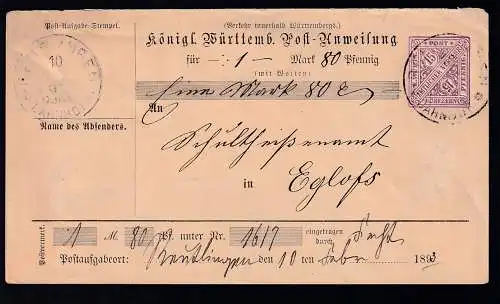 (Verkehr innerhalb Württembergs.)
Post-Ausgabe-Stempel.
Königl. Württemb. Post-Anweisung
für 1 Mark 80 Pfennig
(mit Worten)
Eine Mark 80 ₰
An
Schultheißenamt
in Eglofs
Name des Absenders.
10
POST
15
PFENNIG
Postvermerk.
1 M. 80 Pf. unter Nr. 1617 eingetragen durch
Postaufgabeort: Reutlingen den 10 ten Febr 1893